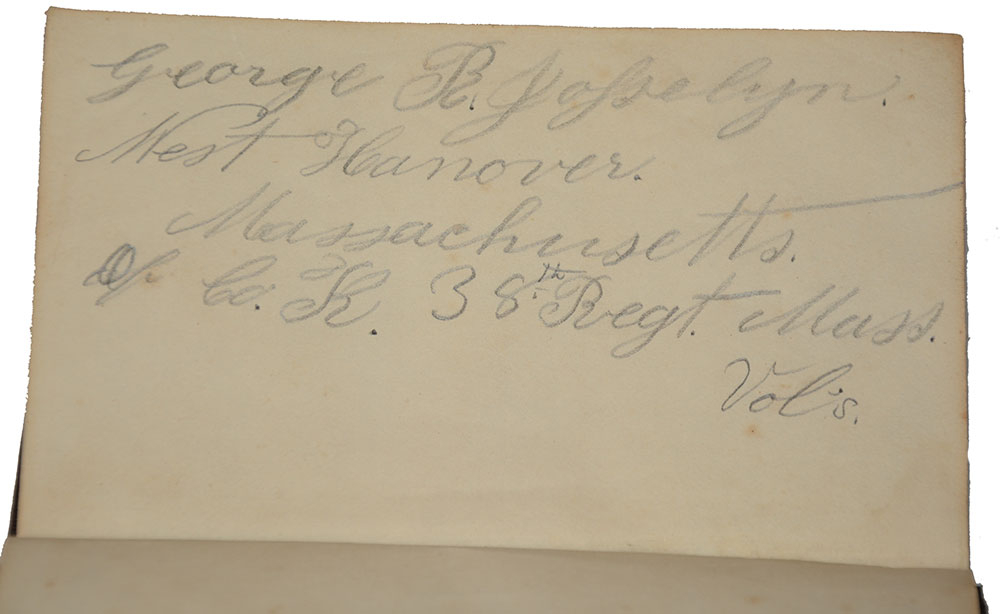 George R. Josselyn.
West Hanover.
Massachusetts.
Of Co. K. 38th Regt. Mass.
Vol's.